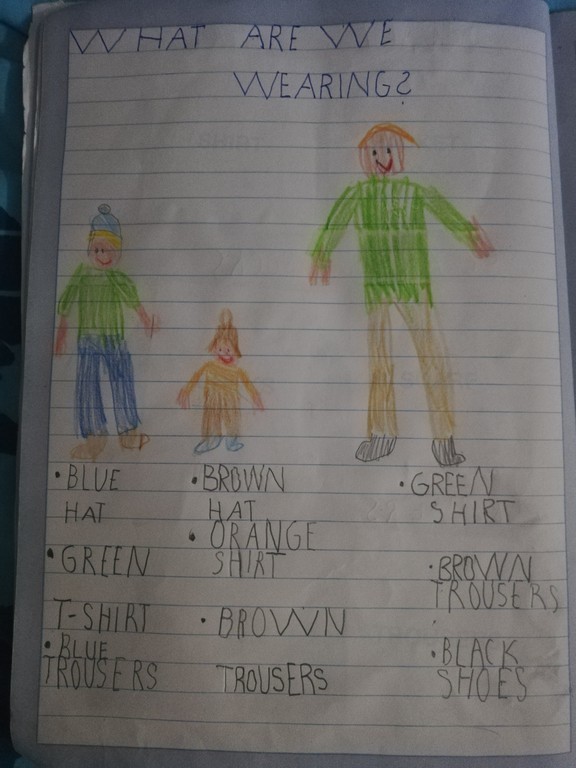 WHAT ARE WE
WEARING?
• BLUE
HAT
• GREEN
T-SHIRT
• BLUE
TROUSERS
• BROWN
HAT
• ORANGE
SHIRT
• BROWN
TROUSERS
• GREEN
SHIRT
• BROWN
TROUSERS
• BLACK
SHOES